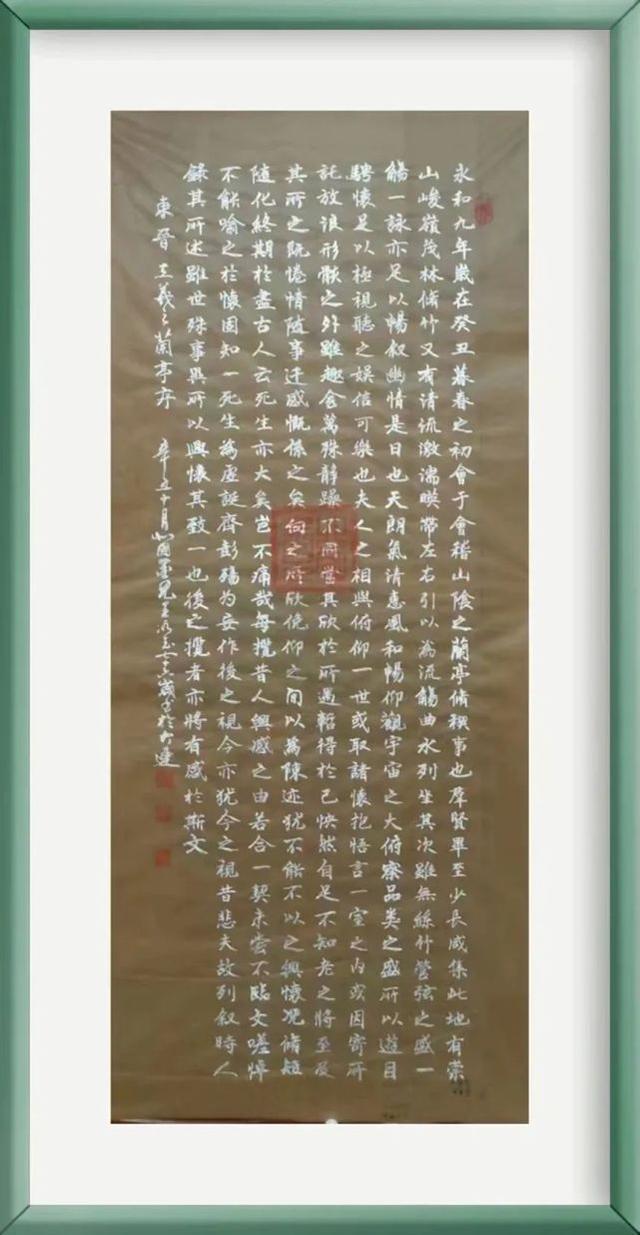 永和九年歲在癸丑暮春之初會于會稽山陰之蘭亭脩稧事也羣賢畢至少長咸集此地有崇
山峻嶺茂林脩竹又有清流激湍暎帶左右引以為流觴曲水列坐其次雖無絲竹管弦之盛一
觴一詠亦足以暢叙幽情是日也天朗氣清惠風和暢仰觀宇宙之大俯察品类之盛所以遊目
騁懷足以極視聽之娱信可樂也夫人之相與俯仰一世或取諸懷抱悟言一室之内或因寄所
託放浪形骸之外雖趣舍萬殊靜躁不同當其欣於所遇暫得於己怏然自足不知老之將至及
其所之既惓情随事迁感慨係之矣向之所欣俛仰之间以為陳迹犹不能不以之興懷况脩短
随化终期於盡古人云死生亦大矣岂不痛哉每攬昔人興感之由若合一契未甞不臨文嗟悼
不能喻之於懷固知一死生為虚誕齊彭殤为妄作後之視今亦犹今之視昔悲夫故列叙時人
錄其所述雖世殊事異所以興懷其致一也後之攬者亦將有感於斯文
東晉王羲之蘭亭序 辛丑十月 於大連